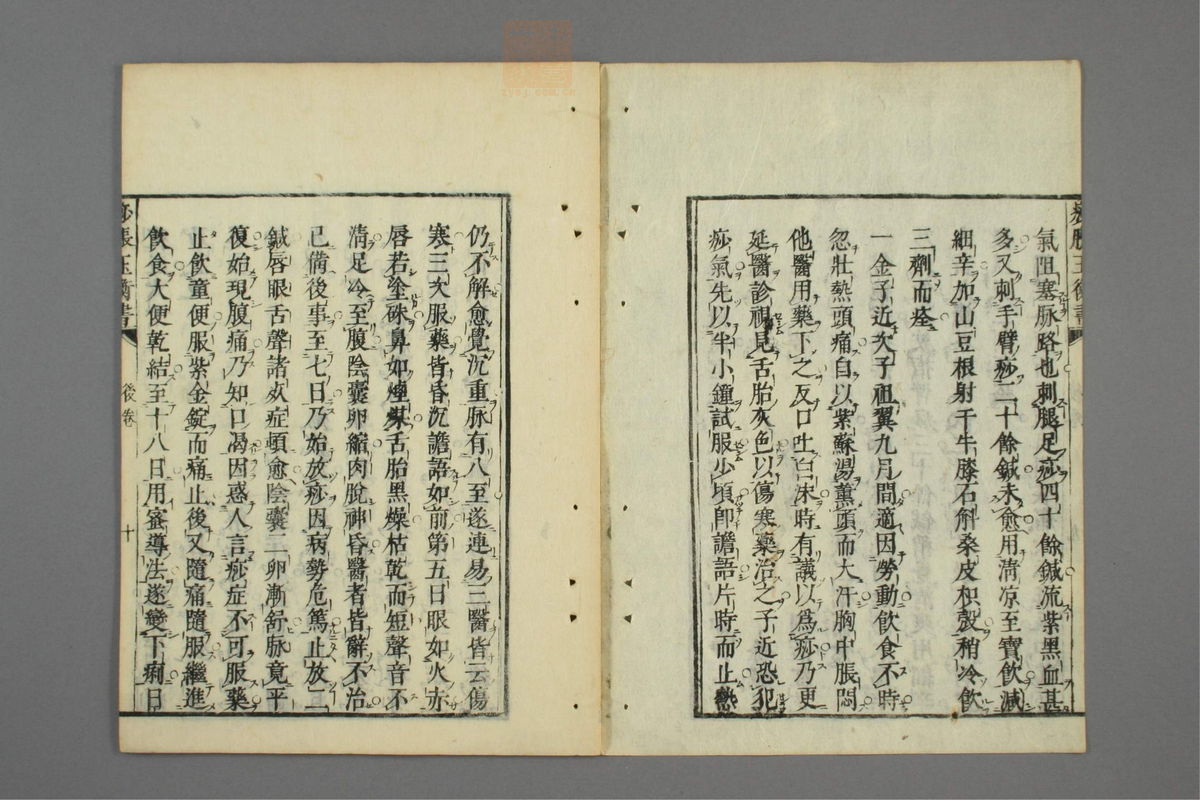 氣阻塞脉路也刺腿足痧四十餘鍼流紫黑血甚
多又刺手臂痧二十餘鍼未愈用清凉至寶飲減
細辛加山豆根射干牛膝石斛桑皮枳殼稍冷飲
三劑而痊
一金子近次子祖翼九月間適因勞動飲食不時
忽壯熱頭痛自以紫蘇湯薰頭而大汗胸中脹悶
他醫用藥下之反口吐白沫時有議以爲痧乃更
延醫診視見舌胎灰色以傷寒藥治之子近恐犯
痧氣先以半小鍾試服少頃卽譫語片時而止熱
仍不解愈覺沉重脉有八至遂連易三醫皆云傷
寒三次服藥皆昏沉譫語如前第五日眼如火赤
唇若塗硃鼻如煙煤舌胎黑燥枯乾而短聲音不
清足冷至腹陰囊卵縮肉脫神昏醫者皆辭不治
已備後事至七日乃始放痧因病勢危篤止放二
鍼唇眼舌聲諸款症頓愈陰囊二卵漸舒脉竟平
復始現腹痛乃知口渴因惑人言痧症不可服藥
止飲童便服紫金錠而痛止後又隨痛隨服繼進
飲食大便乾結至十八日用蜜導法遂變下痢日
痧脹玉衡書
後卷
十